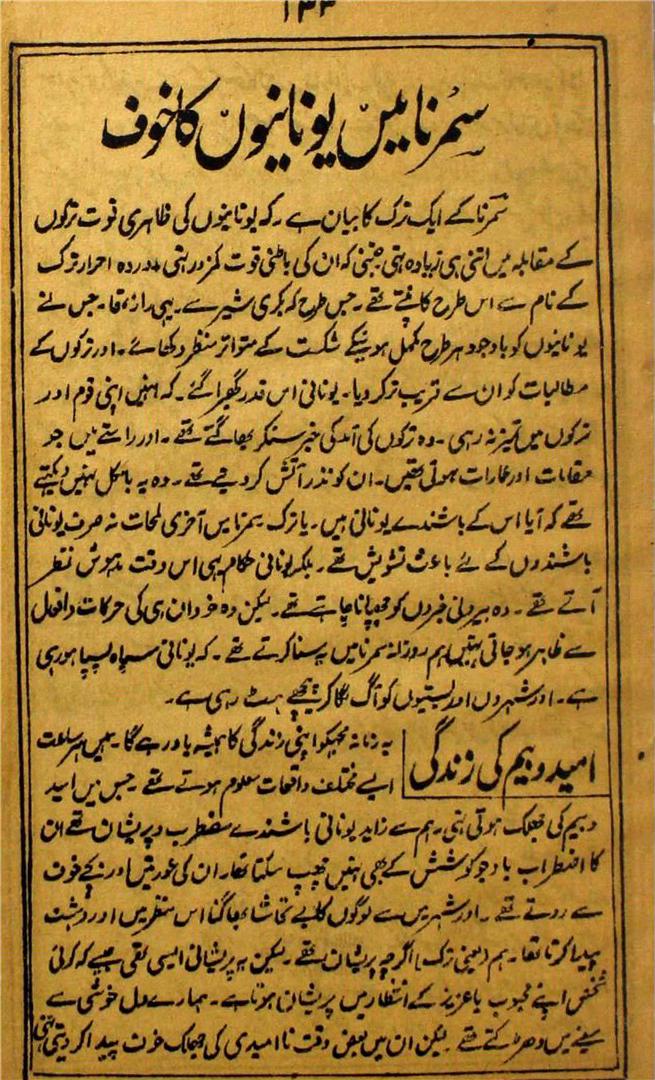 ۱۳۳
سمرنا میں یونانیوں کا خوف
سمرنا کے ایک ترک کا بیان ہے۔ کہ یونانیوں کی ظاہری قوت ترکوں
کے مقابلہ میں اتنی ہی زیادہ تہی جتنی کہ ان کی باطنی قوت کمزور تہی۔ وہ احرار ترک
کے نام سے اس طرح کانپتے تھے۔ جس طرح کہ بکری شیر سے۔ یہی راز تھا۔ جس نے
یونانیوں کو باوجود ہر طرح مکمل ہونیکے شکست کے متواتر منظر دکھائے۔ اور ترکوں کے
مطالبات کو ان سے قریب تر کر دیا۔ یونانی اس قدر گھبرا گئے۔ کہ انہیں اپنی قوم اور
ترکوں میں تمیز نہ رہی۔ وہ ترکوں کی آمد کی خبر سنکر بھاگتے تھے۔ اور راستے میں جو
مقامات اور عمارات ہوتی تھیں۔ ان کو نذر آتش کر دیتے تھے۔ وہ یہ بالکل نہیں دیکہتے
تھے کہ آیا اس کے باشندے یونانی ہیں۔ یا ترک۔ سمرنا میں آخری لمحات نہ صرف یونانی
باشندوں کے لئے باعث تشویش تھے۔ بلکہ یونانی حکام بہی اس وقت مدہوش نظر
آتے تھے۔ وہ بیرونی خبروں کو چھپانا چاہتے تھے۔ لیکن وہ خود ان ہی کی حرکات و افعال
سے ظاہر ہو جاتی تہیں ہم روزانہ سمرنا میں یہ سنا کرتے تھے۔ کہ یونانی سپاہ پسپا ہو رہی
ہے۔ اور شہروں اور بستیوں کو آگ لگا کر پیچھے ہٹ رہی ہے۔
امید و بیم کی زندگی
یہ زمانہ مجہکو اپنی زندگی کا ہمیشہ یاد رہے گا۔ ہمیں ہر ساعت
ایسے مختلف واقعات معلوم ہوتے تھے۔ جس میں امید
و بیم کی جھلک ہوتی تہی۔ ہم سے زاید یونانی باشندے مضطرب و پریشان تھے ان
کا اضطراب باوجود کوشش کے بھی نہیں چھپ سکتا تھا۔ ان کی عورتیں اور بچے خوف
سے روتے تھے۔ اور شہر میں سے لوگوں کا بے تحاشا بھاگنا اس منظر میں اور دہشت
پیدا کرتا تھا۔ ہم (یعنی ترک) اگرچہ پریشان تھے۔ لیکن یہ پریشانی ایسی تھی جیسے کہ کوئی
شخص اپنے محبوب یا عزیز کے انتظار میں پریشان ہوتا ہے۔ ہمارے دل خوشی سے
سینے میں دھڑکتے تھے۔ لیکن ان میں بعض وقت نا امیدی کی جھلک خوف پیدا کر دیتی تہی